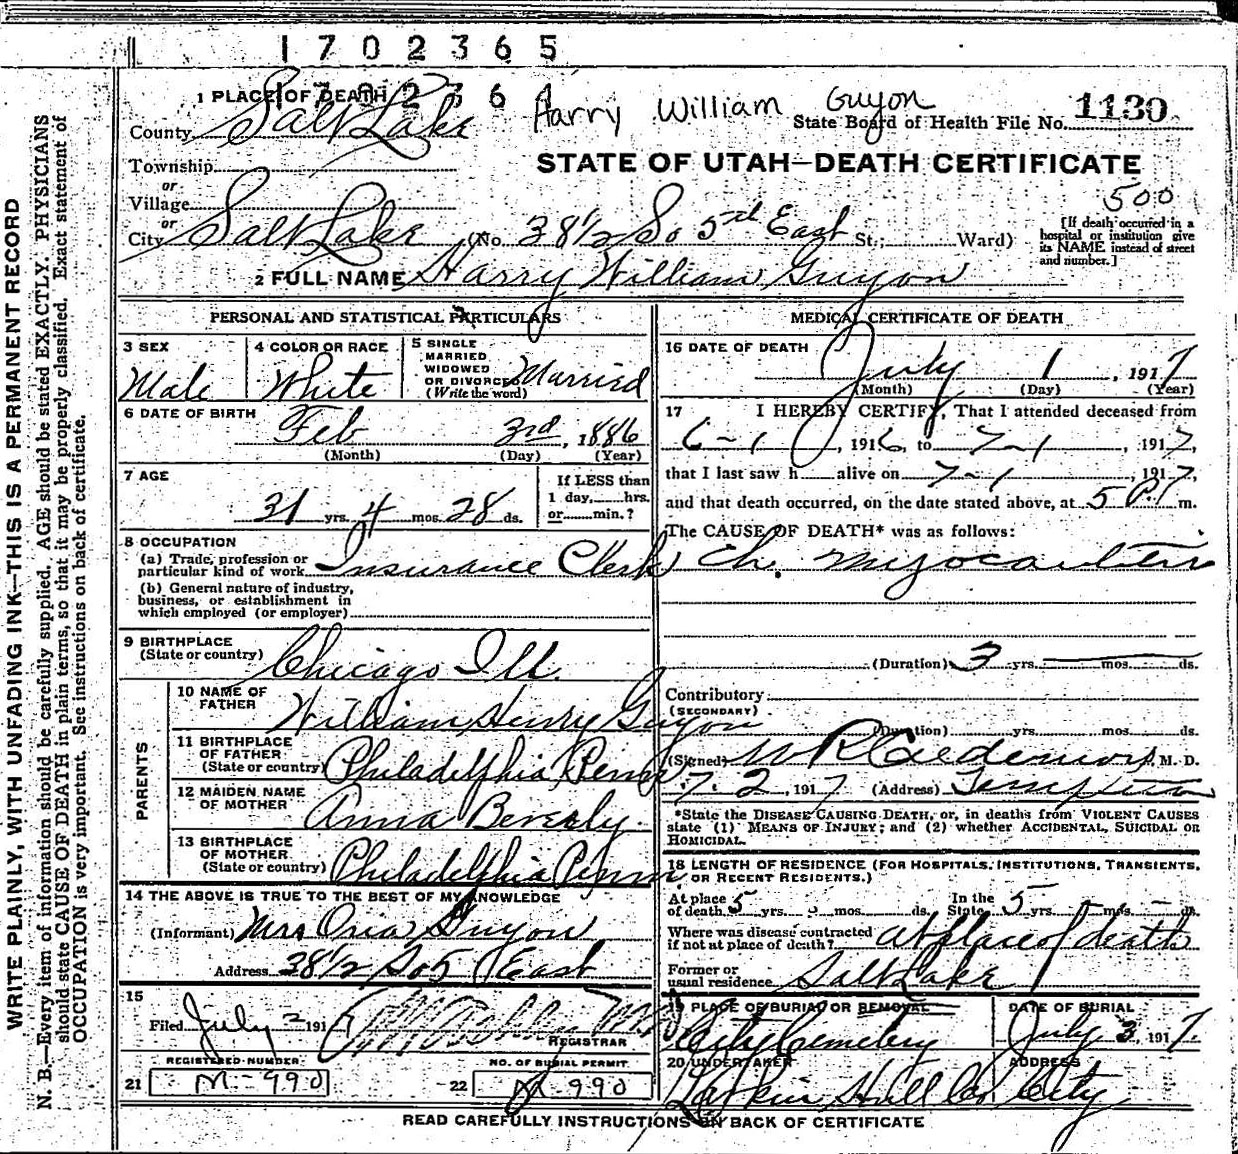 1702365
1702364
Harry William Guyon
1 PLACE OF DEATH
County Salt Lake
State Board of Health File No. 1130
Township
or
Village
or
City Salt Lake
STATE OF UTAH—DEATH CERTIFICATE
500
(No. 38 1/2 So 5th East St.; Ward)
[If death occurred in a
hospital or institution give
its NAME instead of street
and number.]
2 FULL NAME Harry William Guyon
PERSONAL AND STATISTICAL PARTICULARS
3 SEX
Male
4 COLOR OR RACE
White
5 SINGLE
MARRIED
WIDOWED
OR DIVORCED
(Write the word)
Married
6 DATE OF BIRTH
Feb 3rd, 1886
(Month) (Day) (Year)
7 AGE
31 yrs. 4 mos. 28 ds.
If LESS than
1 day, hrs.
or min.?
8 OCCUPATION
(a) Trade, profession or
particular kind of work Insurance Clerk
(b) General nature of industry,
business, or establishment in
which employed (or employer)
9 BIRTHPLACE
(State or country)
Chicago Ill.
PARENTS
10 NAME OF
FATHER
William Henry Guyon
11 BIRTHPLACE
OF FATHER
(State or country)
Philadelphia Penn
12 MAIDEN NAME
OF MOTHER
Anna Beverly
13 BIRTHPLACE
OF MOTHER
(State or country)
Philadelphia Penn
14 THE ABOVE IS TRUE TO THE BEST OF MY KNOWLEDGE
(Informant) Mrs Guyon
Address 38 1/2 So 5 East
15
Filed July 2 1917
REGISTRAR
REGISTERED NUMBER
21 M-990
NO. OF BURIAL PERMIT
22 M-990
MEDICAL CERTIFICATE OF DEATH
16 DATE OF DEATH
July 1, 1917
(Month) (Day) (Year)
17 I HEREBY CERTIFY, That I attended deceased from
6-1, 1916, to 7-1, 1917,
that I last saw h alive on 7-1, 1917,
and that death occurred, on the date stated above, at 5 P. m.
The CAUSE OF DEATH* was as follows:
Ch. myocarditis
(Duration) 3 yrs. mos. ds.
Contributory
(SECONDARY)
(Duration) yrs. mos. ds.
(Signed) M. D.
7-2, 1917 (Address) Templeton
*State the DISEASE CAUSING DEATH, or, in deaths from VIOLENT CAUSES
state (1) MEANS OF INJURY; and (2) whether ACCIDENTAL, SUICIDAL OR
HOMICIDAL.
18 LENGTH OF RESIDENCE (FOR HOSPITALS, INSTITUTIONS, TRANSIENTS,
OR RECENT RESIDENTS.)
At place
of death 5 yrs. mos. ds.
In the
State 5 yrs. mos. ds.
Where was disease contracted
if not at place of death? at place of death
Former or
usual residence Salt Lake
19 PLACE OF BURIAL OR REMOVAL
City Cemetery
DATE OF BURIAL
July 3, 1917.
20 UNDERTAKER
Larkin Hull Co
ADDRESS
City
READ CAREFULLY INSTRUCTIONS ON BACK OF CERTIFICATE
WRITE PLAINLY, WITH UNFADING INK—THIS IS A PERMANENT RECORD
N. B.—Every item of information should be carefully supplied. AGE should be stated EXACTLY. PHYSICIANS
should state CAUSE OF DEATH in plain terms, so that it may be properly classified. Exact statement of
OCCUPATION is very important. See instructions on back of certificate.